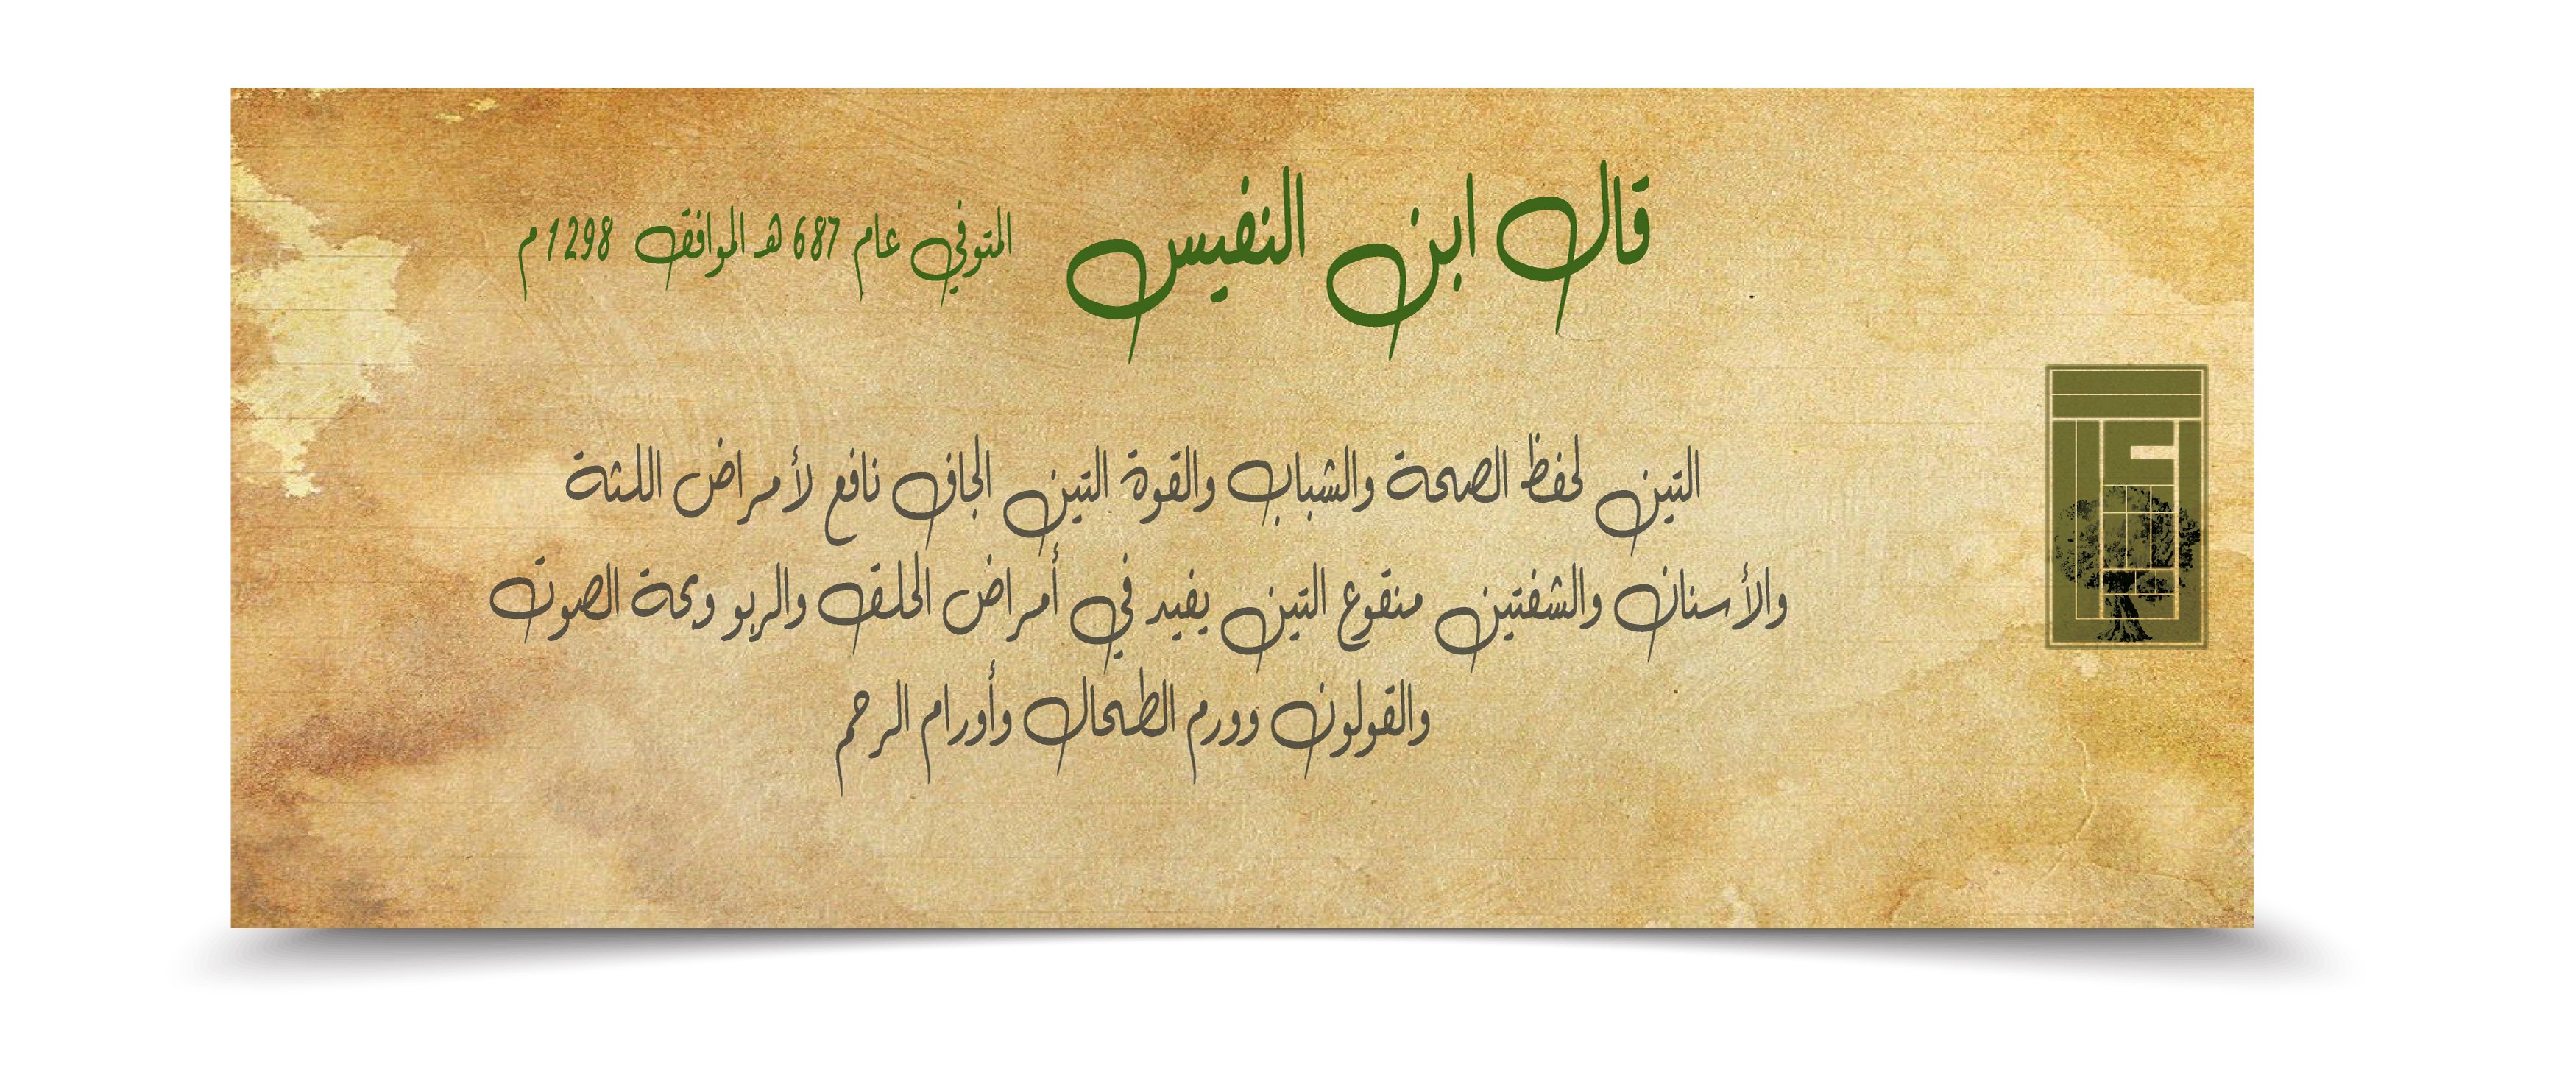 قال ابن النفيس المتوفي عام 687 هـ الموافق 1298 م
التين لحفظ الصحة والشباب والقوة التين الجاف نافع لأمراض اللثة
والأسنان والشفتين منقوع التين يفيد في أمراض الحلق والربو وبحة الصوت
والقولون وورم الطحال وأورام الرحم